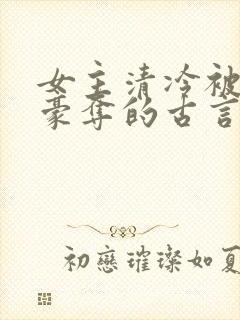 女主清冷被
豪夺的古言
初戀璀璨如夏